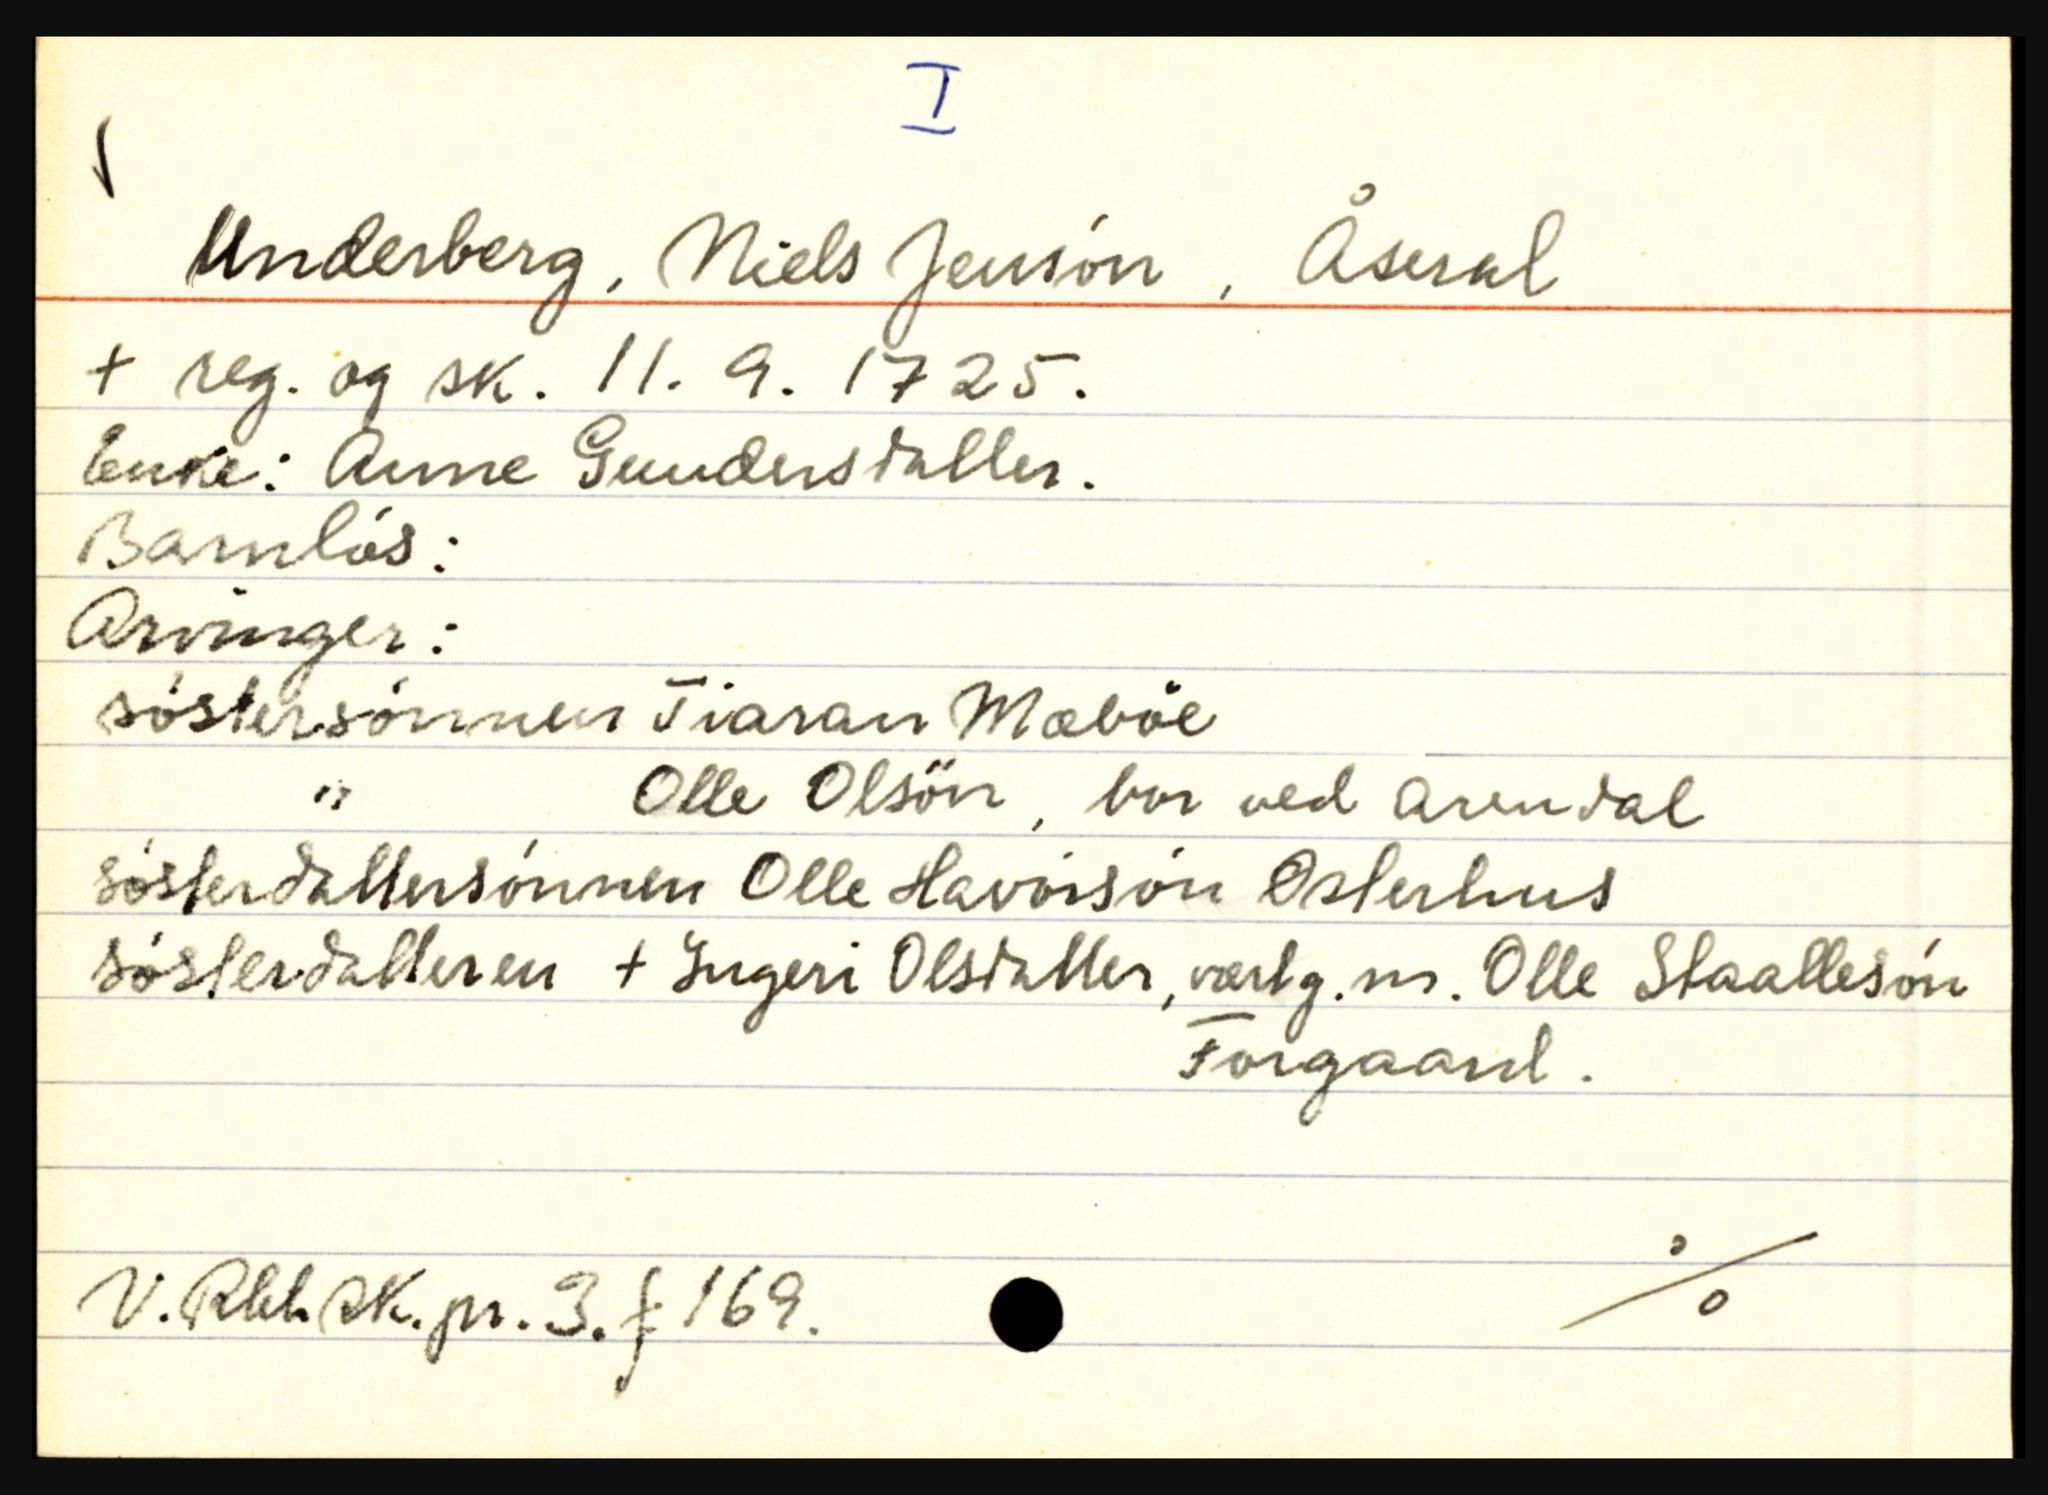 I
Underberg, Niels Jensón, Åseral
+ reg. og sk. 11. 9. 1725.
Enke: Anne Gundersdatter.
Barnlós:
Arvinger:
sóstersónnen Tiaran Mæböe
" Olle Olsön, bor ved Arendal
sósterdattersónnen Olle Havórsón Osterhus
sósterdatteren + Ingeri Olsdatter, værlg. m. Olle Staallesón
Torgaard.
V. Rbh. sk. pr. 3. f 169. %